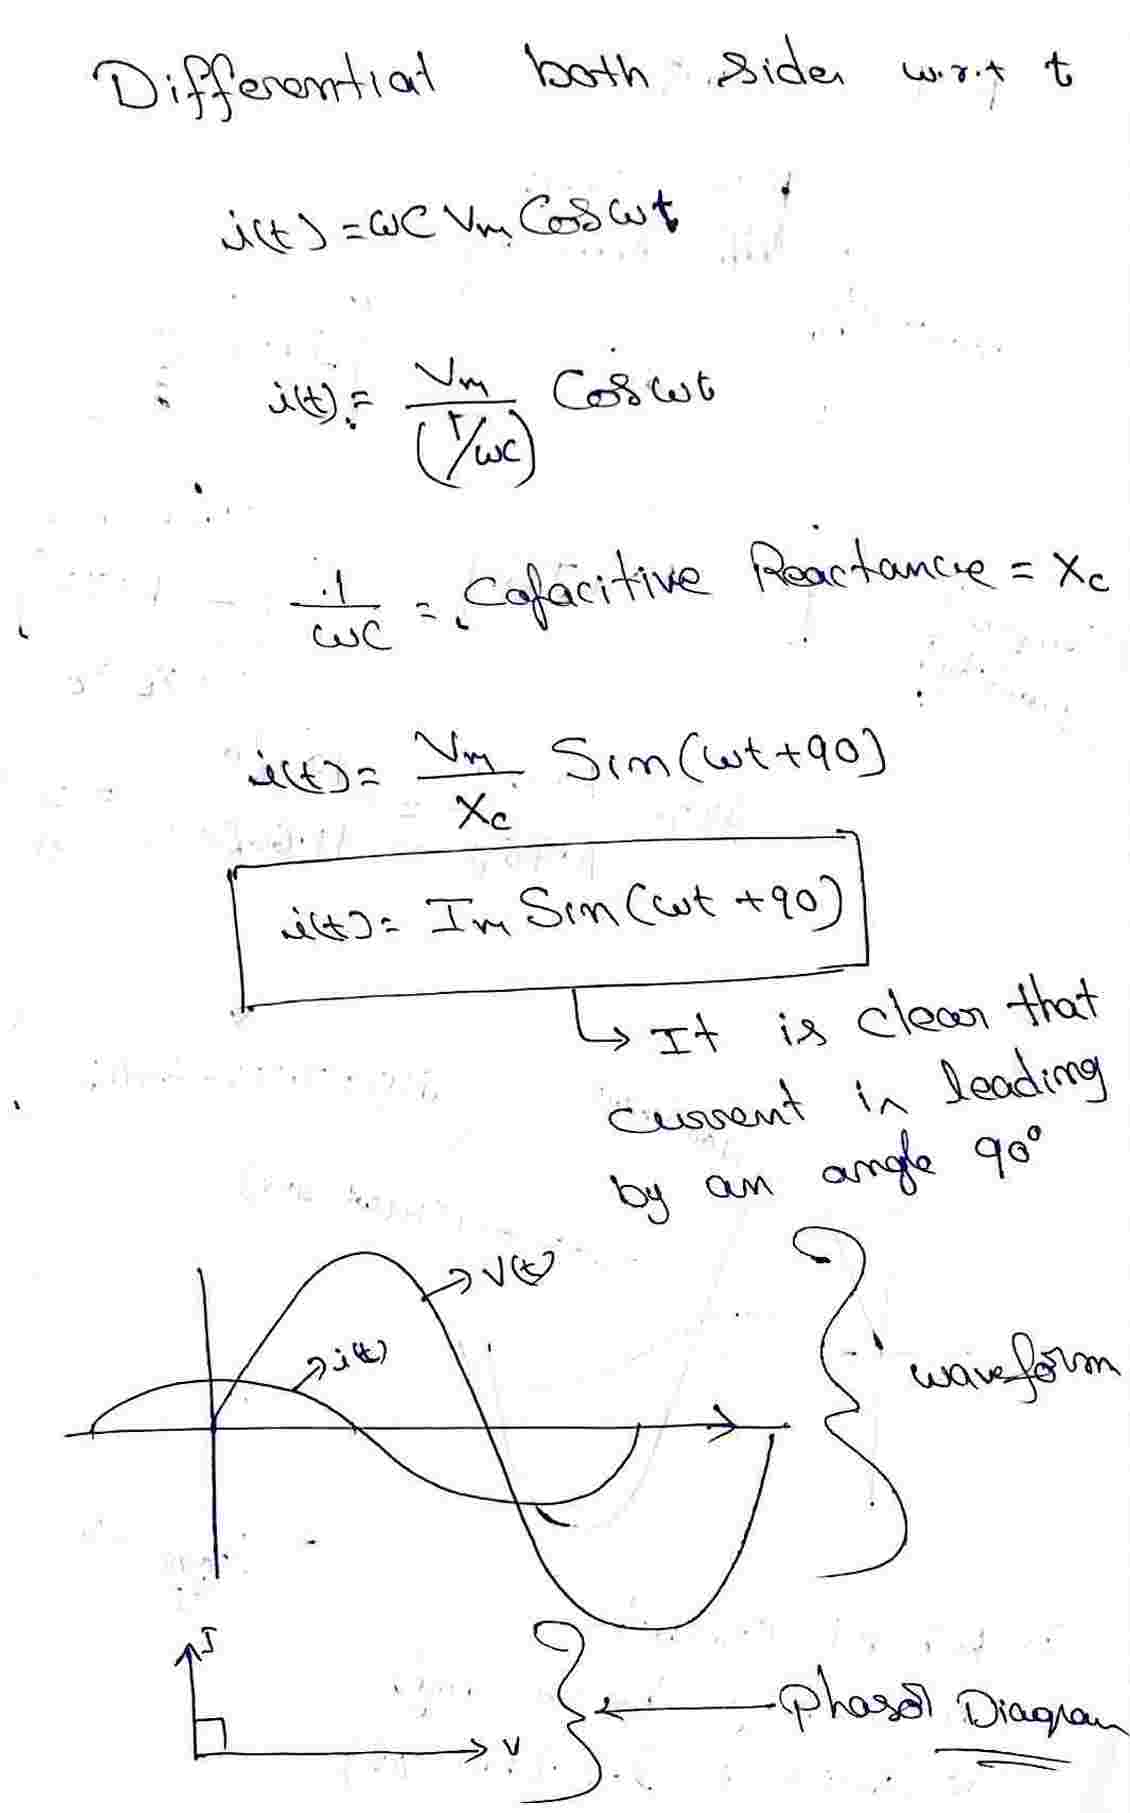 Differential both side w.r.t t
i(t) = ωC Vm Cos ωt
i(t) = Vm / (1/ωC) Cos ωt
1/ωC = Cafacitive Reactance = Xc
i(t) = Vm/Xc Sin(ωt+90)
i(t) = Im Sin(ωt +90)
It is clear that
current is leading
by an angle 90°
V(t)
i(t)
waveform
I
V
Phasor Diagram